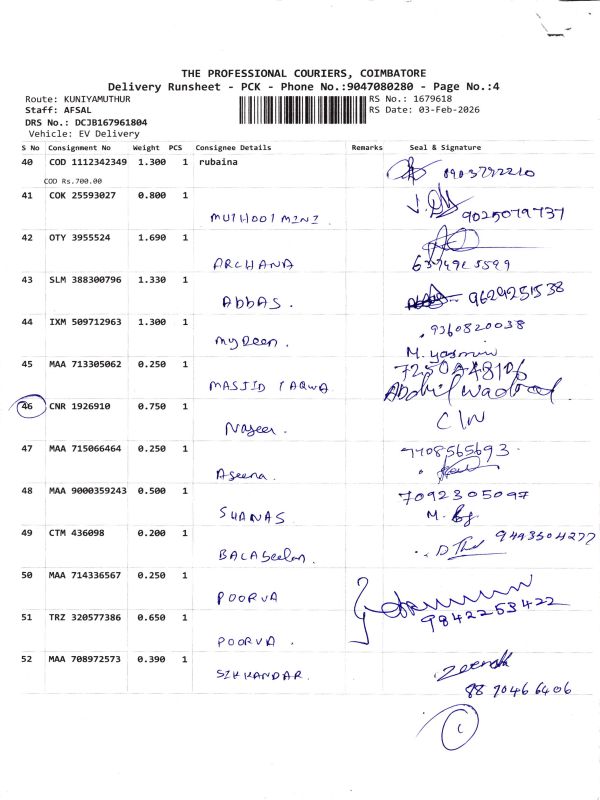 THE PROFESSIONAL COURIERS, COIMBATORE
Delivery Runsheet - PCK - Phone No.:9047080280 - Page No.:4
Route: KUNIYAMUTHUR RS No.: 1679618
Staff: AFSAL RS Date: 03-Feb-2026
DRS No.: DCJB167961804
Vehicle: EV Delivery
S No Consignment No Weight PCS Consignee Details Remarks Seal & Signature
40 COD 1112342349 1.300 1 rubaina
COD Rs.700.00
41 COK 25593027 0.800 1
MUTHOOT MINI 9025079737
42 OTY 3955524 1.690 1
ARCHANA
43 SLM 388300796 1.330 1
Abbas. 9629251538
44 IXM 509712963 1.300 1
9360820038
Mydeen. M. yasmin
45 MAA 713305062 0.250 1
MASJID TAQWA
46 CNR 1926910 0.750 1
Naseer. C/W
47 MAA 715066464 0.250 1
7708565693.
Aseena.
48 MAA 9000359243 0.500 1
7092305097
SHANAS
49 CTM 436098 0.200 1
9443504277
BALAseelan.
50 MAA 714336567 0.250 1
POORVA
9842253422
51 TRZ 320577386 0.650 1
POORVA.
52 MAA 708972573 0.390 1
SIKKANDAR.
8870466406